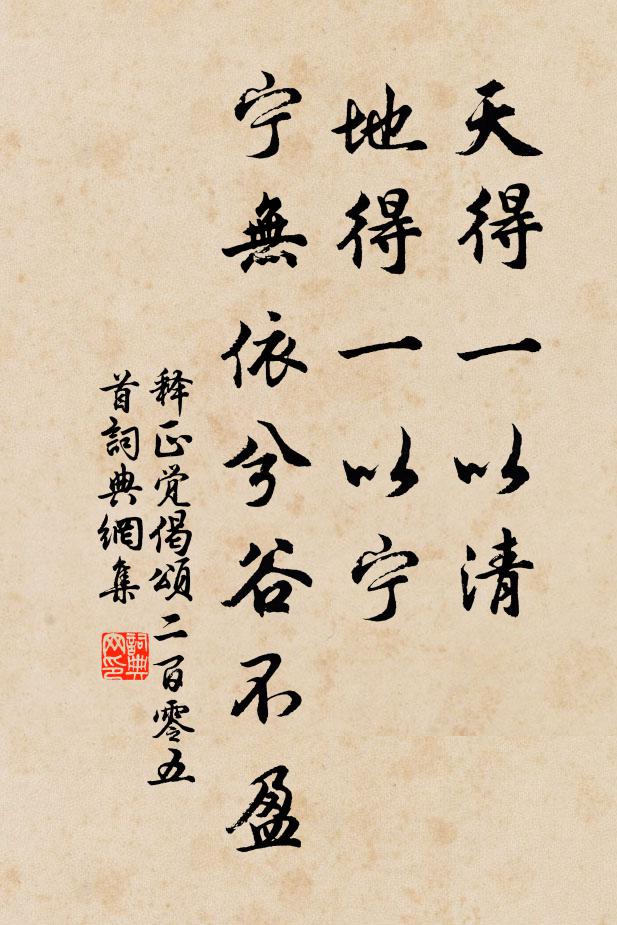 天得一以清
地得一以宁
宁無依兮谷不盈
释正觉偈頌二百零五
首詞典網集
詞典
网印